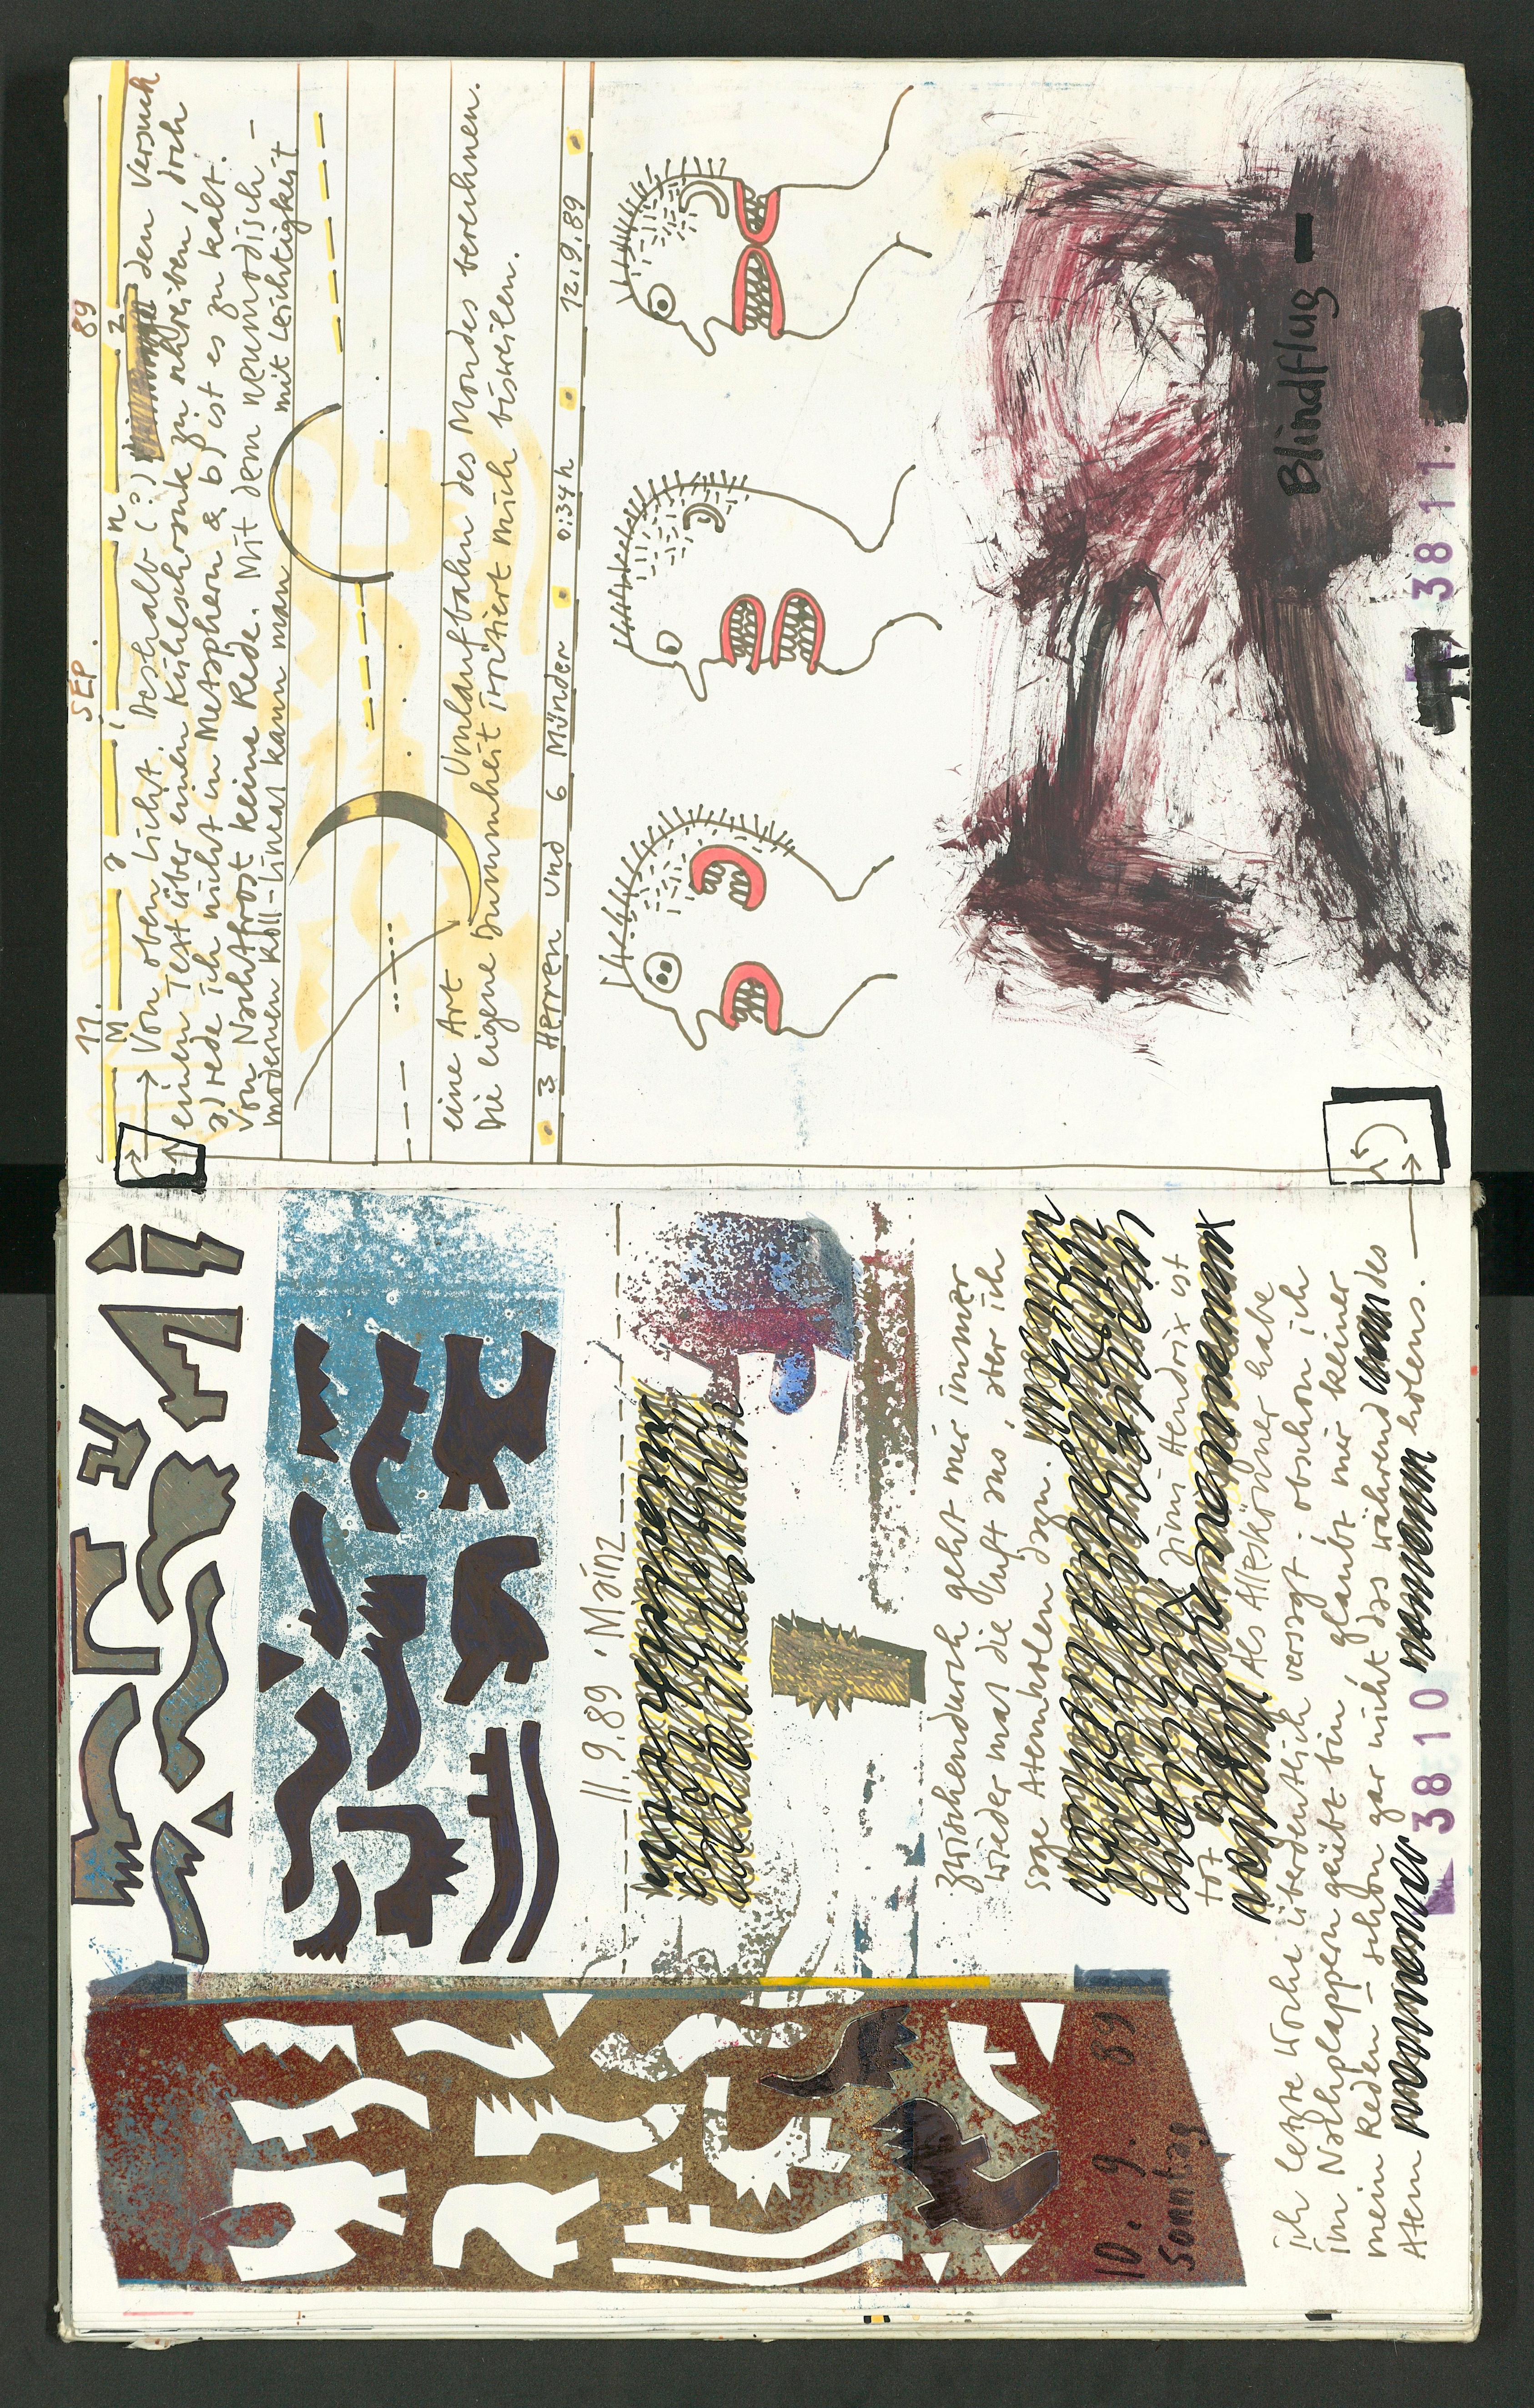 10. 9. 89
Sonntag
11.9.89 Mainz
zwischendurch geht mir immer
wieder mal die Luft aus, aber ich
sage Atemholen dazu.
Jimi Hendrix ist
tot
Als Alleskönner habe
ich letzte Woche überdeutlich versagt; obschon ich
im Nachplappern geübt bin, glaubt mir keiner
mein Reden – schon gar nicht das während des
Atem holens.
3810
11. SEP. 89
M a i n z
Von oben Licht. Deshalb (?) den Versuch
einen Text über einen Kühlschrank zu schreiben, doch
a) rede ich nicht in Metaphern & b) ist es zu kalt.
Von Nachtfrost keine Rede. Mit dem neumodisch-
modernen Roll-Lineal kann man mit Leichtigkeit
eine Art Umlaufbahn des Mondes berechnen.
Die eigene Dummheit irritiert mich bisweilen.
3 Herren und 6 Münder 0:34 h 12.9.89
Blindflug –
3811